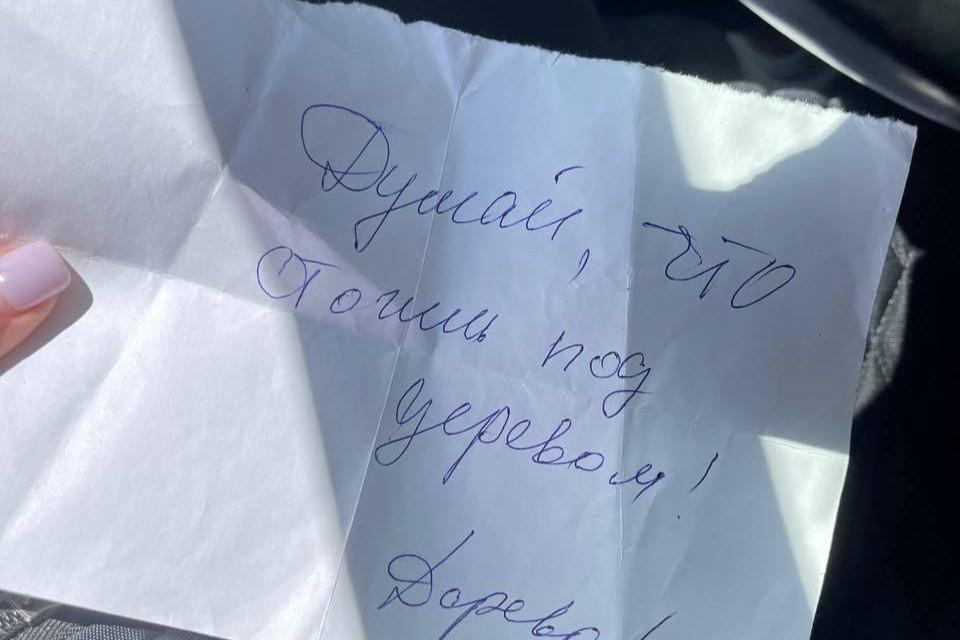 Думай, что
стоишь под
деревом!
Дерево!